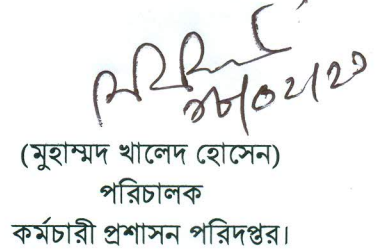 ২৮/০২/২৩
(মুহাম্মদ খালেদ হোসেন)
পরিচালক
কর্মচারী প্রশাসন পরিদপ্তর।